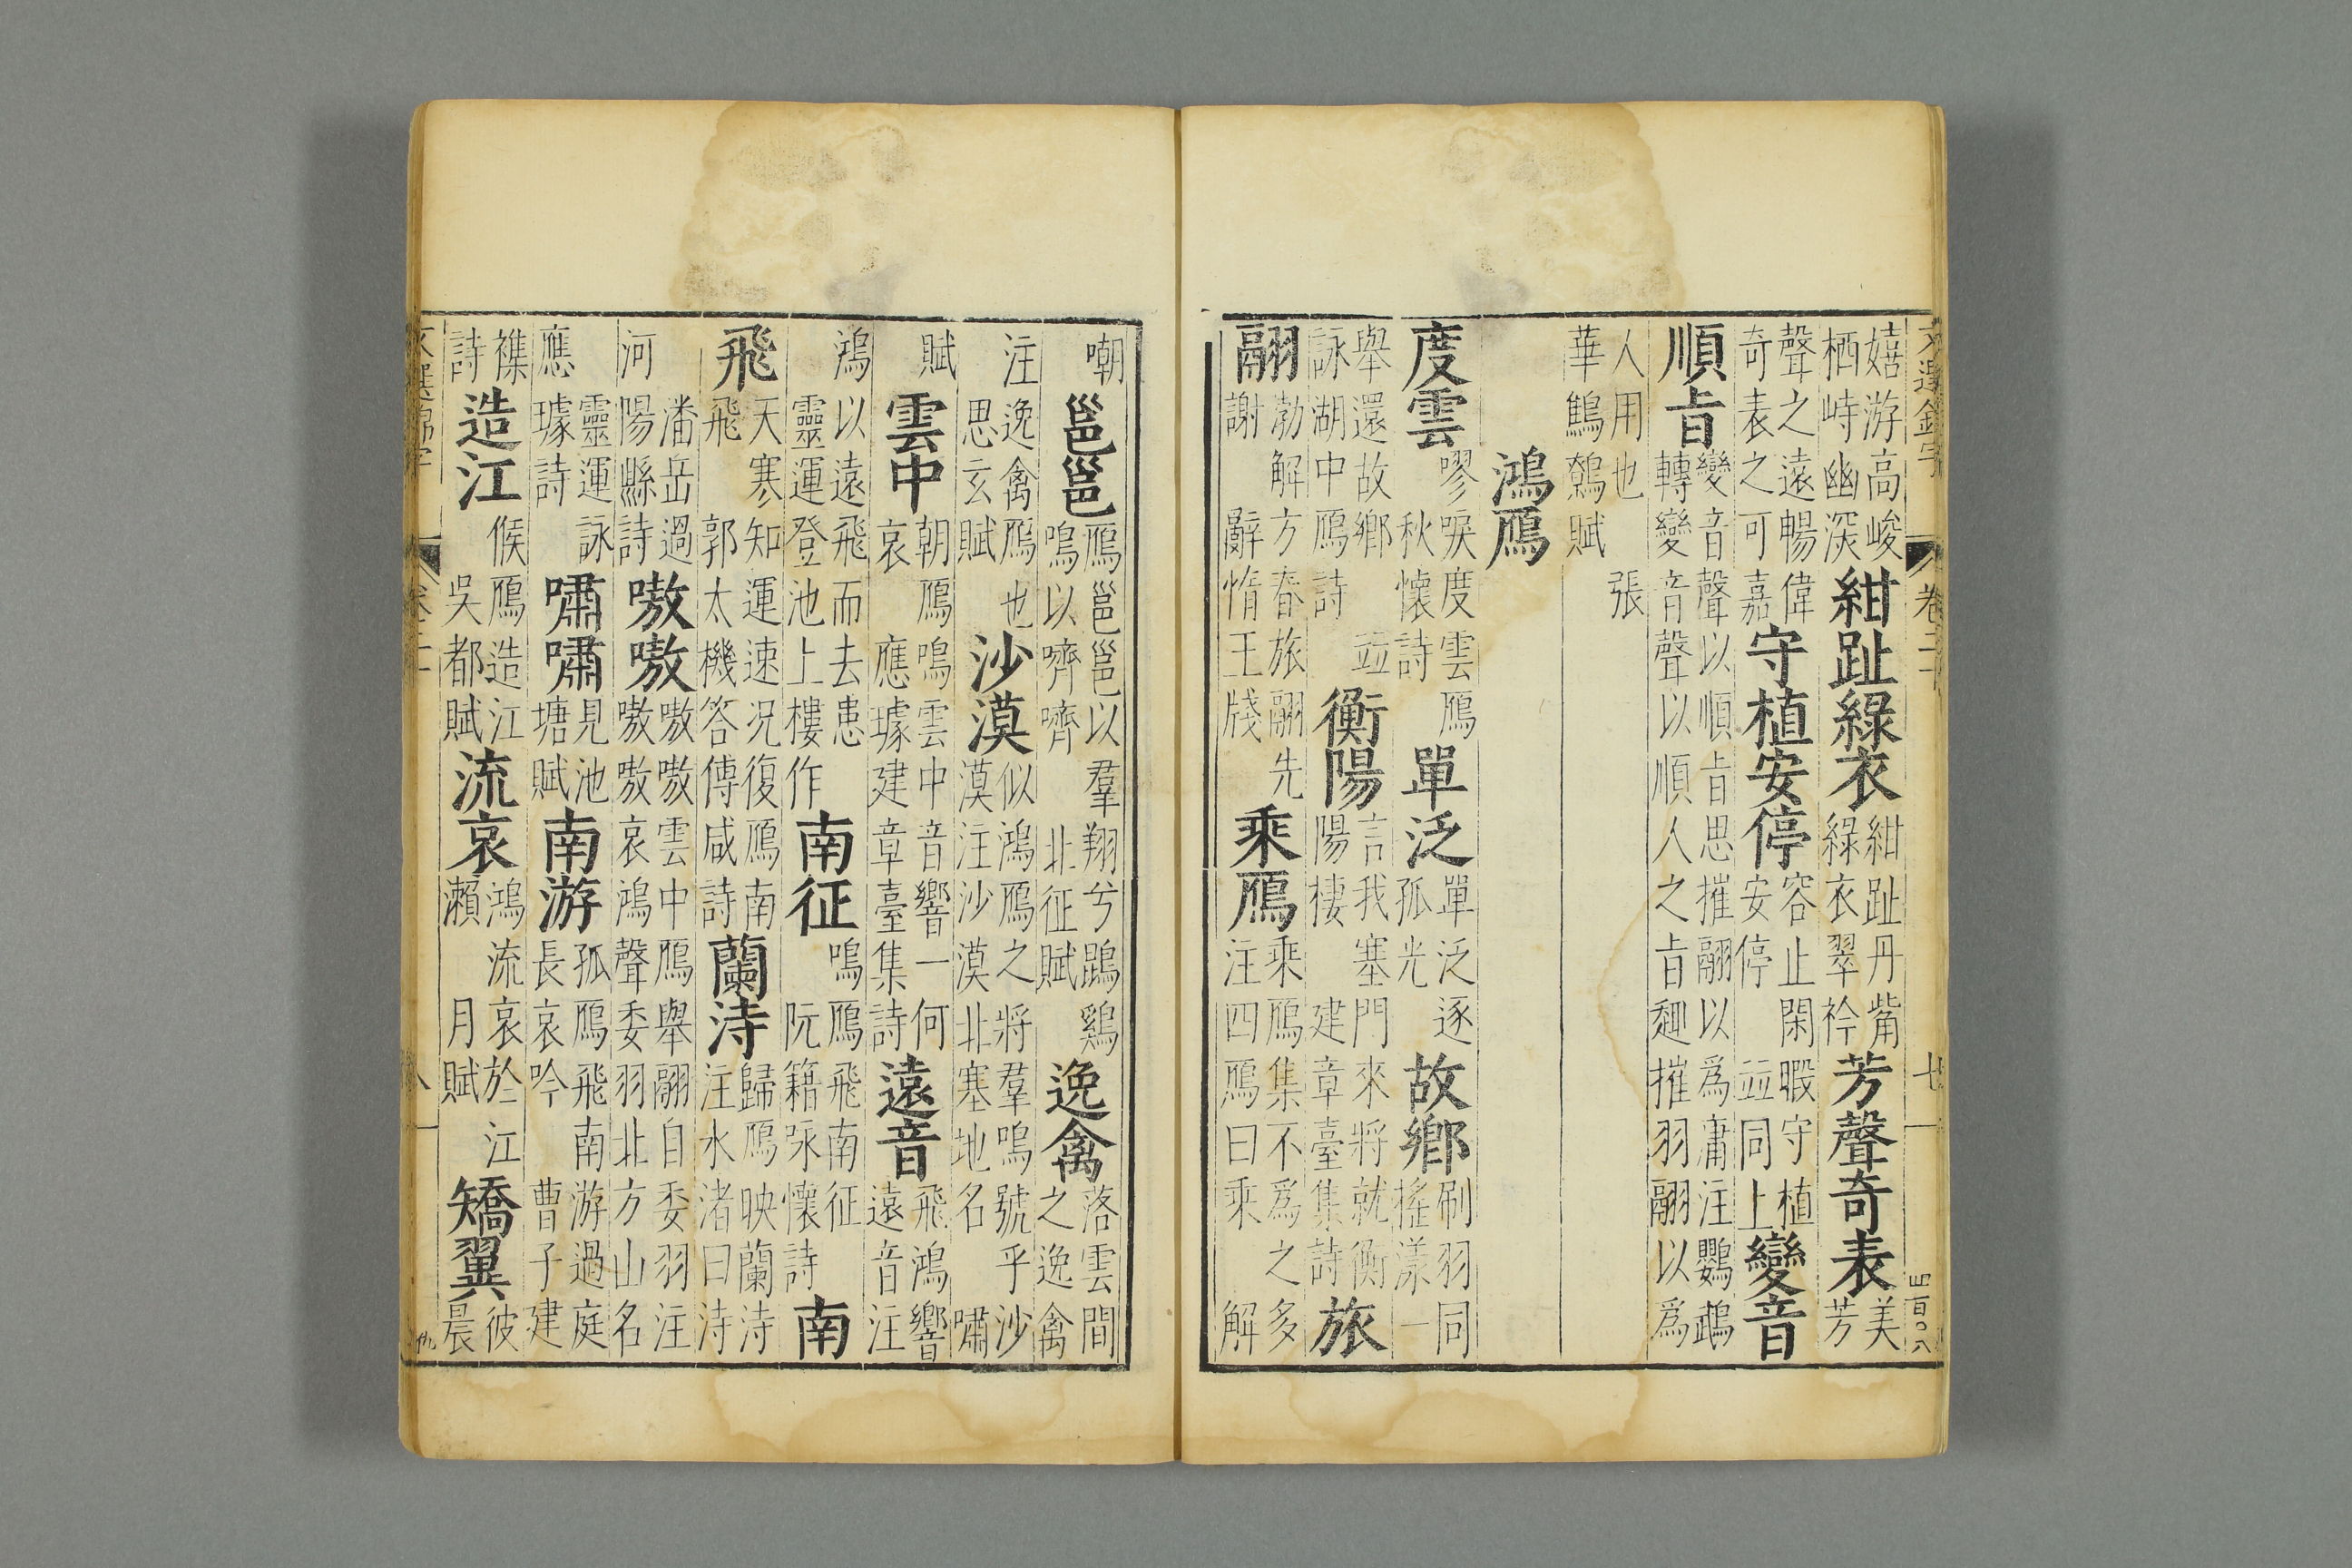 文選錦字 卷二十 七 四百〇八
嬉游高峻栖峙幽深紺趾綠衣紺趾丹觜綠衣翠衿芳聲奇表美芳
聲之遠暢偉奇表之可嘉守植安停容止閑暇守植安停 並同上變音
順旨變音聲以順旨思摧翮以爲庸注鸚鵡轉變音聲以順人之旨翹摧羽翮以爲
人用也 張華鷦鷯賦
鴻鴈
度雲嘐唳度雲鴈秋懷詩單泛單泛逐孤光故鄉刷羽同搖漾一
舉還故鄉 並詠湖中鴈詩衡陽言我塞門來將就衡陽棲 建章臺集詩旅
翮渤解方春旅翮先謝 辭惰王牋乘鴈乘鴈集不爲之多注四鴈曰乘 解
嘲邕邕鴈邕邕以羣翔兮鵾鷄鳴以嚌嚌 北征賦逸禽落雲間之逸禽
注逸禽鴈也思玄賦沙漠似鴻鴈之將羣鳴號乎沙漠注沙漠北塞地名 嘯
賦雲中朝鴈鳴雲中音響一何哀 應璩建章臺集詩遠音飛鴻響遠音注
鴻以遠飛而去患靈運登池上樓作南征鳴鴈飛南征阮籍詠懷詩南
飛天寒知運速況復鴈南飛 郭太機答傅咸詩蘭洔歸鴈映蘭洔注水渚曰洔
潘岳過河陽縣詩嗷嗷嗷嗷雲中鴈舉翮自委羽注嗷嗷哀鴻聲委羽北方山名
靈運詠應璩詩嘯嘯見池塘賦南游孤鴈飛南游過庭長哀吟 曹子建
襍詩造江候鴈造江吳都賦流哀鴻流哀於江瀨 月賦矯翼彼晨